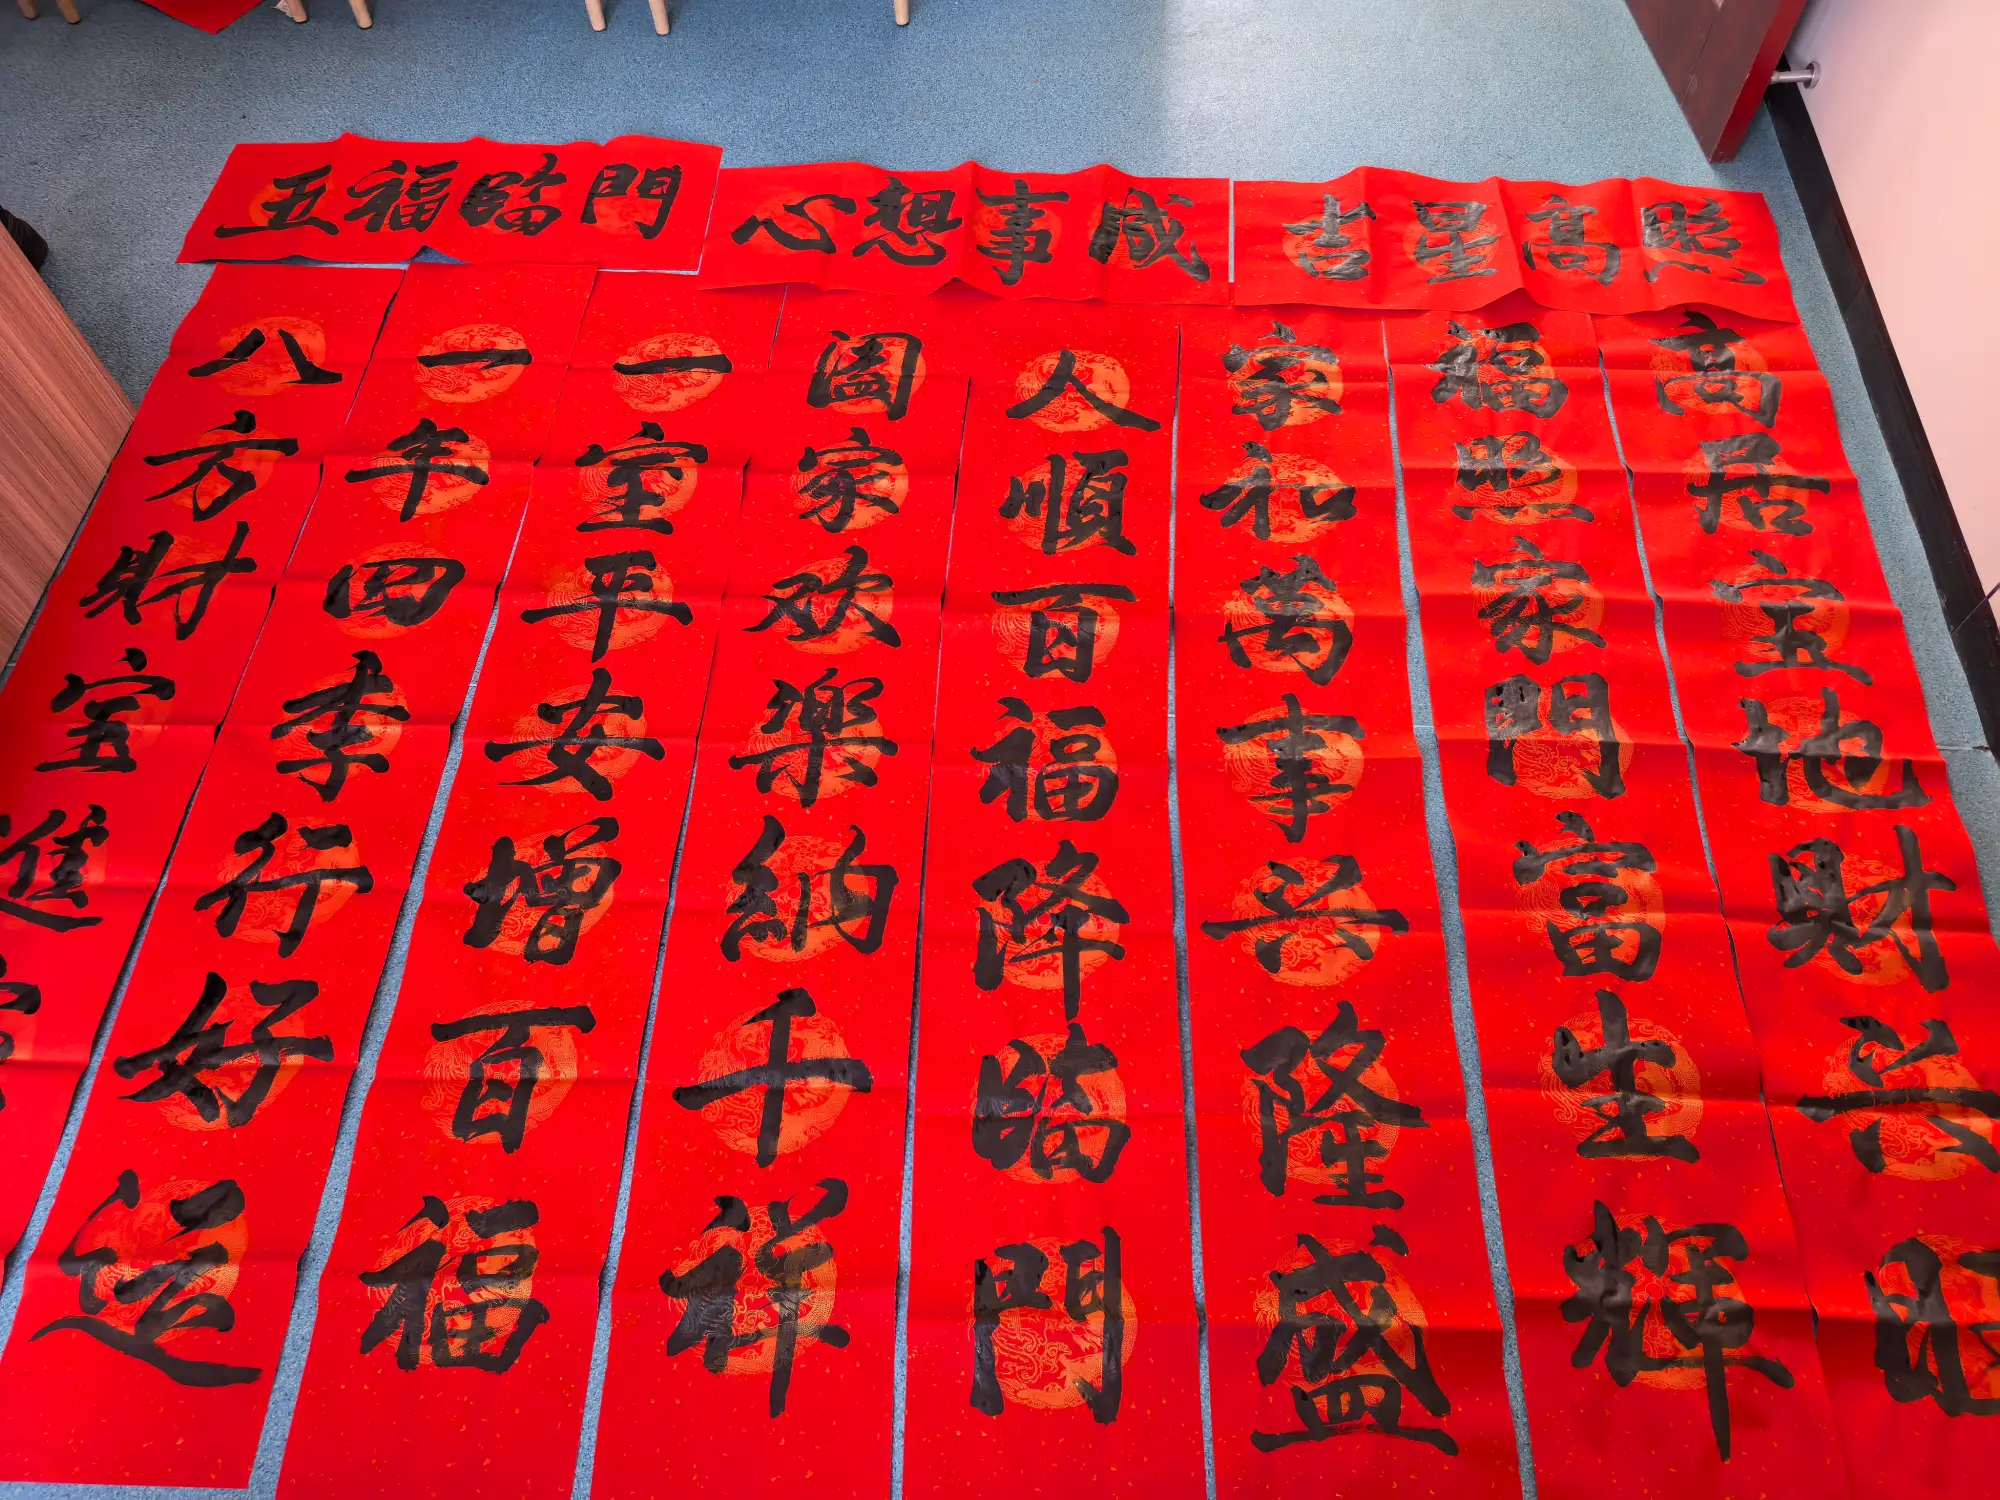 五福臨門
心想事成
吉星高照
八方財宝進
一年四季行好运
一室平安增百福
阖家欢樂納千祥
人順百福降臨門
家和萬事兴隆盛
福照家門富生輝
高居宝地財兴旺